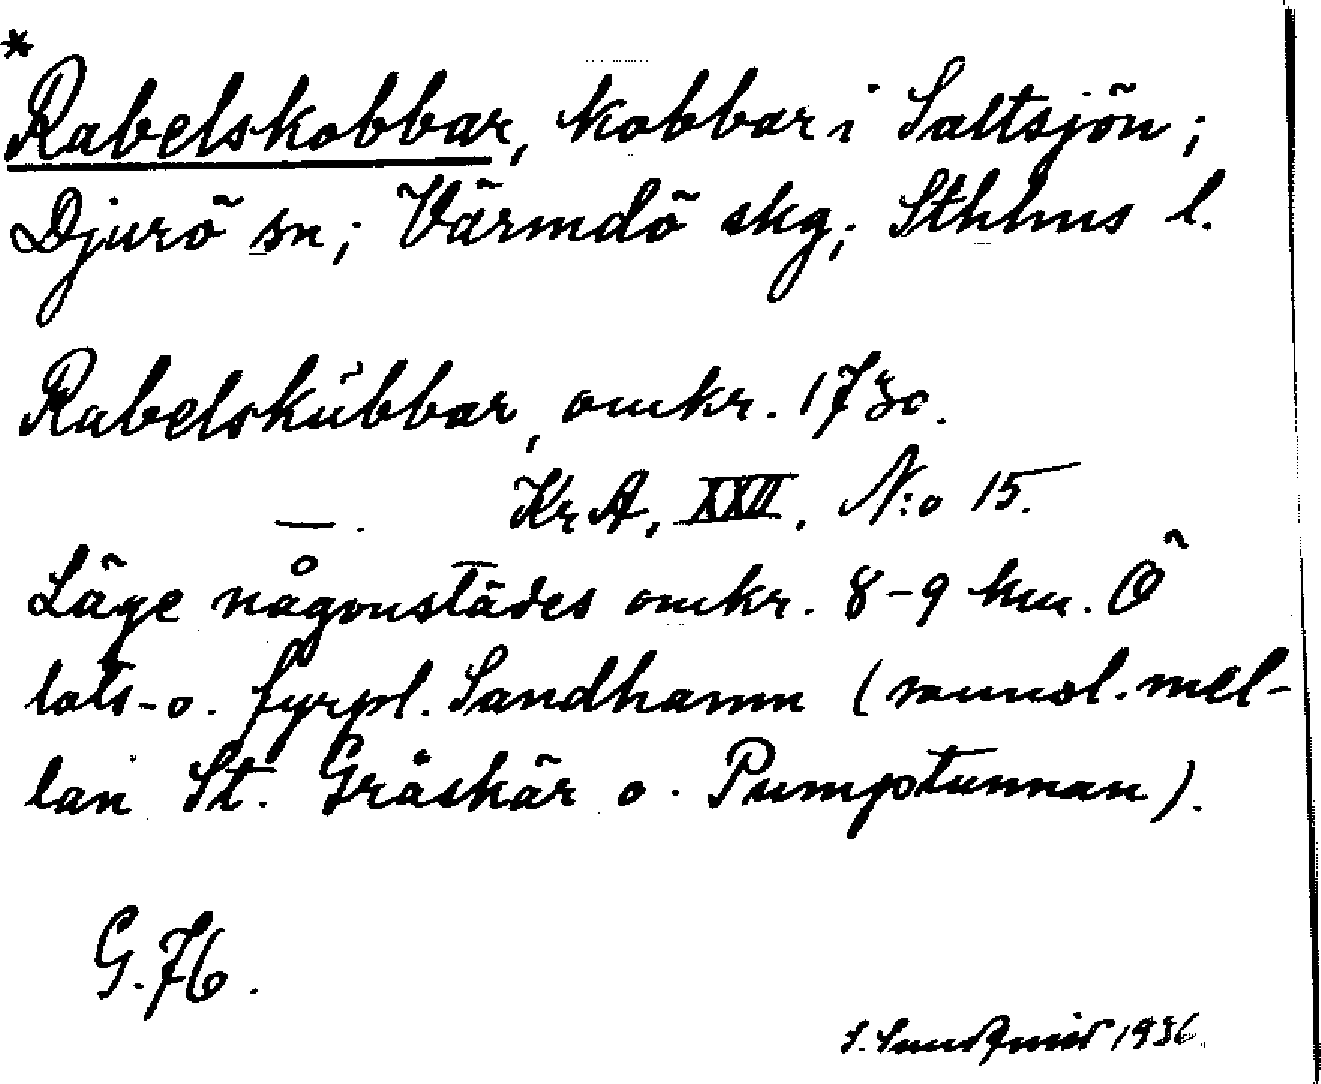 *
Rabelskobbar, kobbar i Saltsjön;
Djurö sn; Värmdö skg; Sthlms l.
Rabelskŭbbar, omkr. 1730.
—. KrA, XXII, N:o 15.
Läge någonstädes omkr. 8-9 km. Ö
lots- o. fyrpl. Sandhamn (sannol. mel-
lan St. Gråskär o. Pumptunnan).
G. 76.
S. Sundqvist 1936.